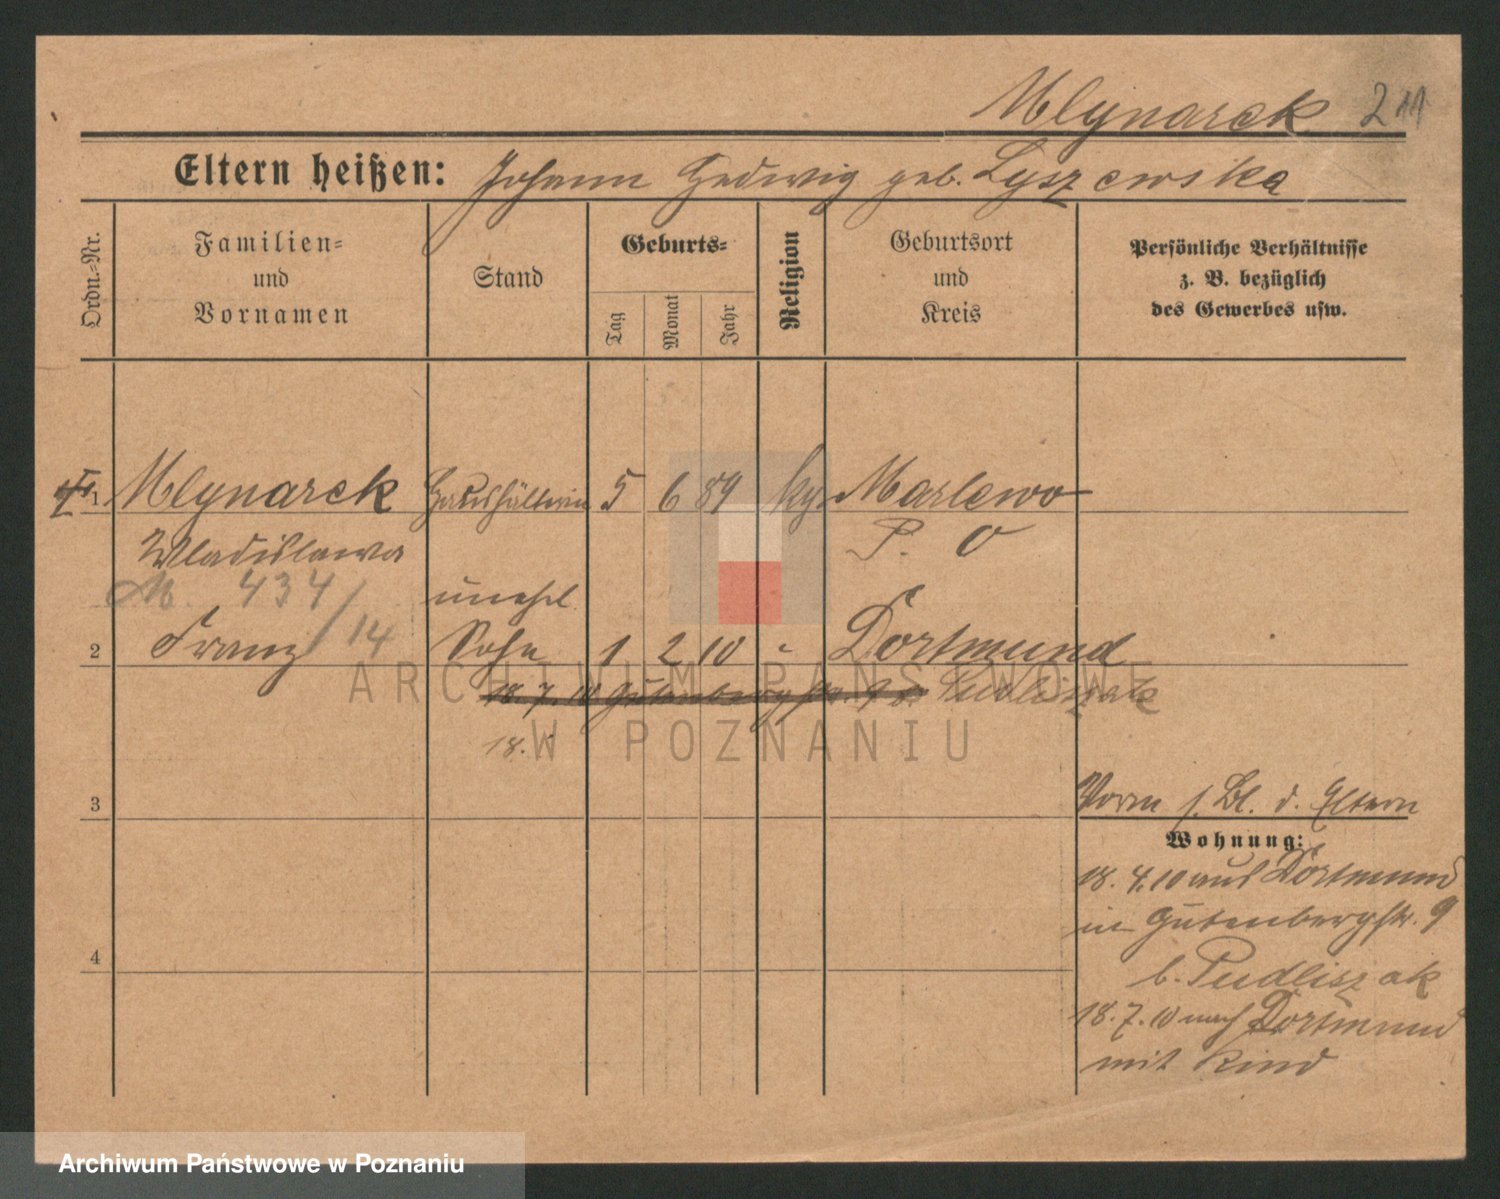 Mlynarek 211
Eltern heißen: Johann Hedwig geb. Lyszewska
Ordn.=Nr.
Familien=
und
Vornamen
Stand
Geburts=
Tag
Monat
Jahr
Religion
Geburtsort
und
Kreis
Persönliche Verhältnisse
z. B. bezüglich
des Gewerbes usw.
1 Mlynarek Haushälterin 5 6 89 Marlewo
Wladislawa P. O
M. 434/14
unehel
2 Franz Sohn 1 2 10 " Dortmund
18.7.10 Gutenbergstr. 9 b. Pudliszak
18.
3
Vorm s. Bl. d. Eltern
Wohnung:
18. 4.10 aus Dortmund
in Gutenbergstr. 9
4
b. Pudliszak
18.7.10 nach Dortmund
mit Kind
ARCHIWUM PAŃSTWOWE
W POZNANIU
Archiwum Państwowe w Poznaniu